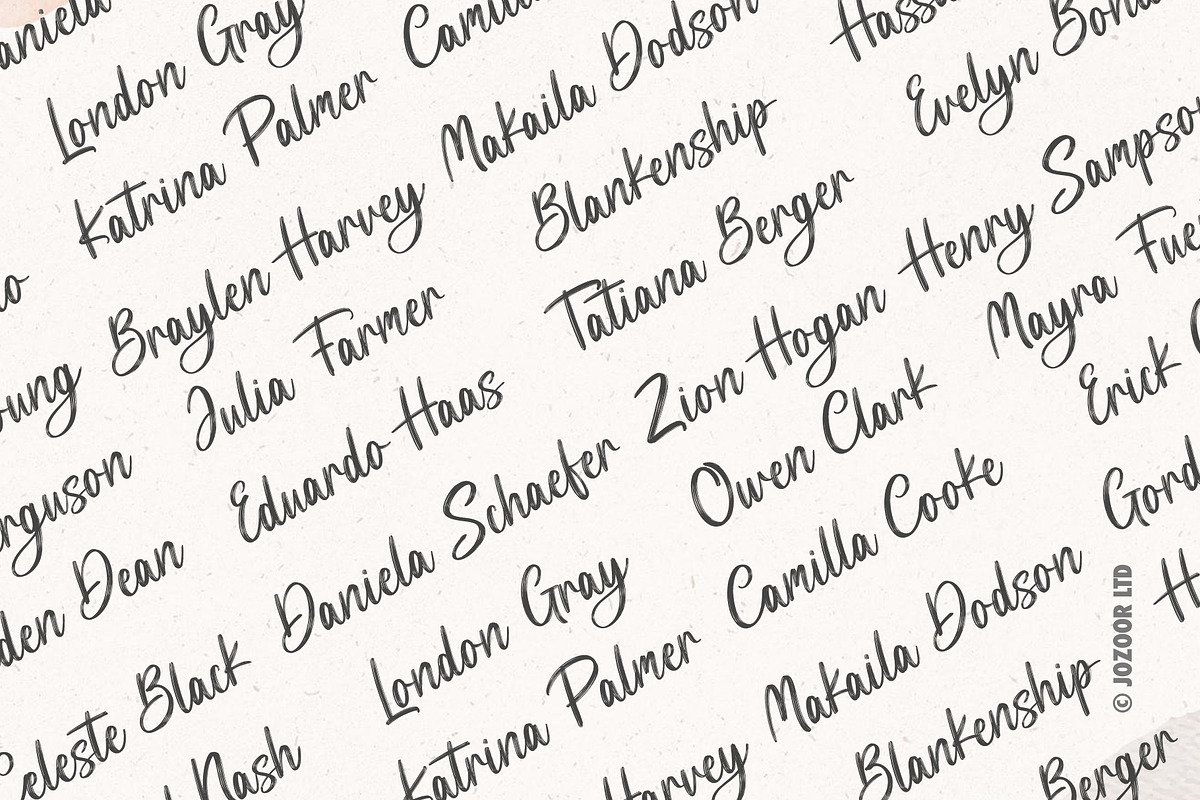 London Gray
Camil
Makaila Dodson
Hass
Evelyn Bon
Katrina Palmer
Blankenship
Braylen Harvey
Tatiana Berger
Henry Sampso
Julia Farmer
Zion Hogan
Mayra Fue
Eduardo Haas
Owen Clark
Erick
oung
rguson
Daniela Schaefer
Camilla Cooke
Gord
den Dean
London Gray
Makaila Dodson
H
eleste Black
Katrina Palmer
Blankenship
Nash
Harvey
Berger
aniela
© JOZOOR LTD